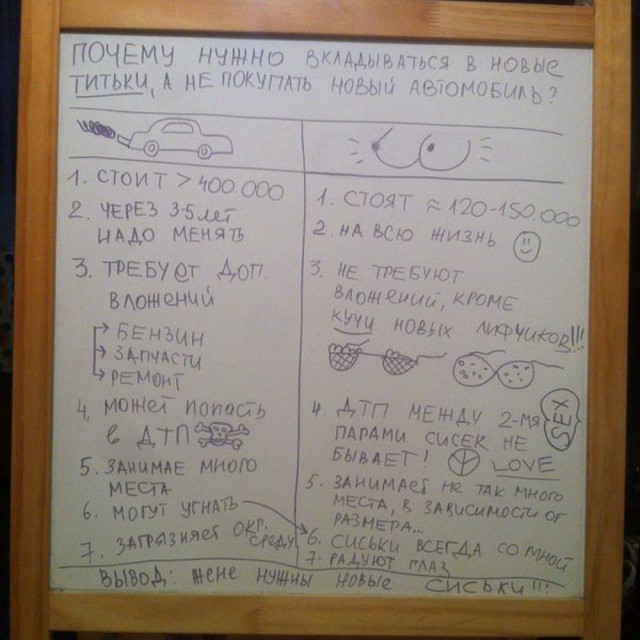 ПОЧЕМУ НУЖНО ВКЛАДЫВАТЬСЯ В НОВЫЕ
ТИТЬКИ, А НЕ ПОКУПАТЬ НОВЫЙ АВТОМОБИЛЬ?
1. СТОИТ > 400.000
2. ЧЕРЕЗ 3-5 лет
НАДО МЕНЯТЬ
3. ТРЕБУЕТ ДОП.
ВЛОЖЕНИЙ
БЕНЗИН
ЗАПЧАСТИ
РЕМОНТ
4. МОЖЕТ ПОПАСТЬ
В ДТП
5. ЗАНИМАЕ МНОГО
МЕСТА
6. МОГУТ УГНАТЬ
7. ЗАГРЯЗНЯЕТ ОКР.
СРЕДУ
1. СТОЯТ ≈ 120-150.000
2. НА ВСЮ ЖИЗНЬ
3. НЕ ТРЕБУЮТ
ВЛОЖЕНИЙ, КРОМЕ
КУЧИ НОВЫХ ЛИФЧИКОВ!!!
4. ДТП МЕЖДУ 2-МЯ
ПАРАМИ СИСЕК НЕ
БЫВАЕТ! LOVE
SEX
5. ЗАНИМАЕТ НЕ ТАК МНОГО
МЕСТА, В ЗАВИСИМОСТИ ОТ
РАЗМЕРА...
6. СИСЬКИ ВСЕГДА СО МНОЙ
7. РАДУЮТ ГЛАЗ
ВЫВОД: МНЕ НУЖНЫ НОВЫЕ СИСЬКИ!!!